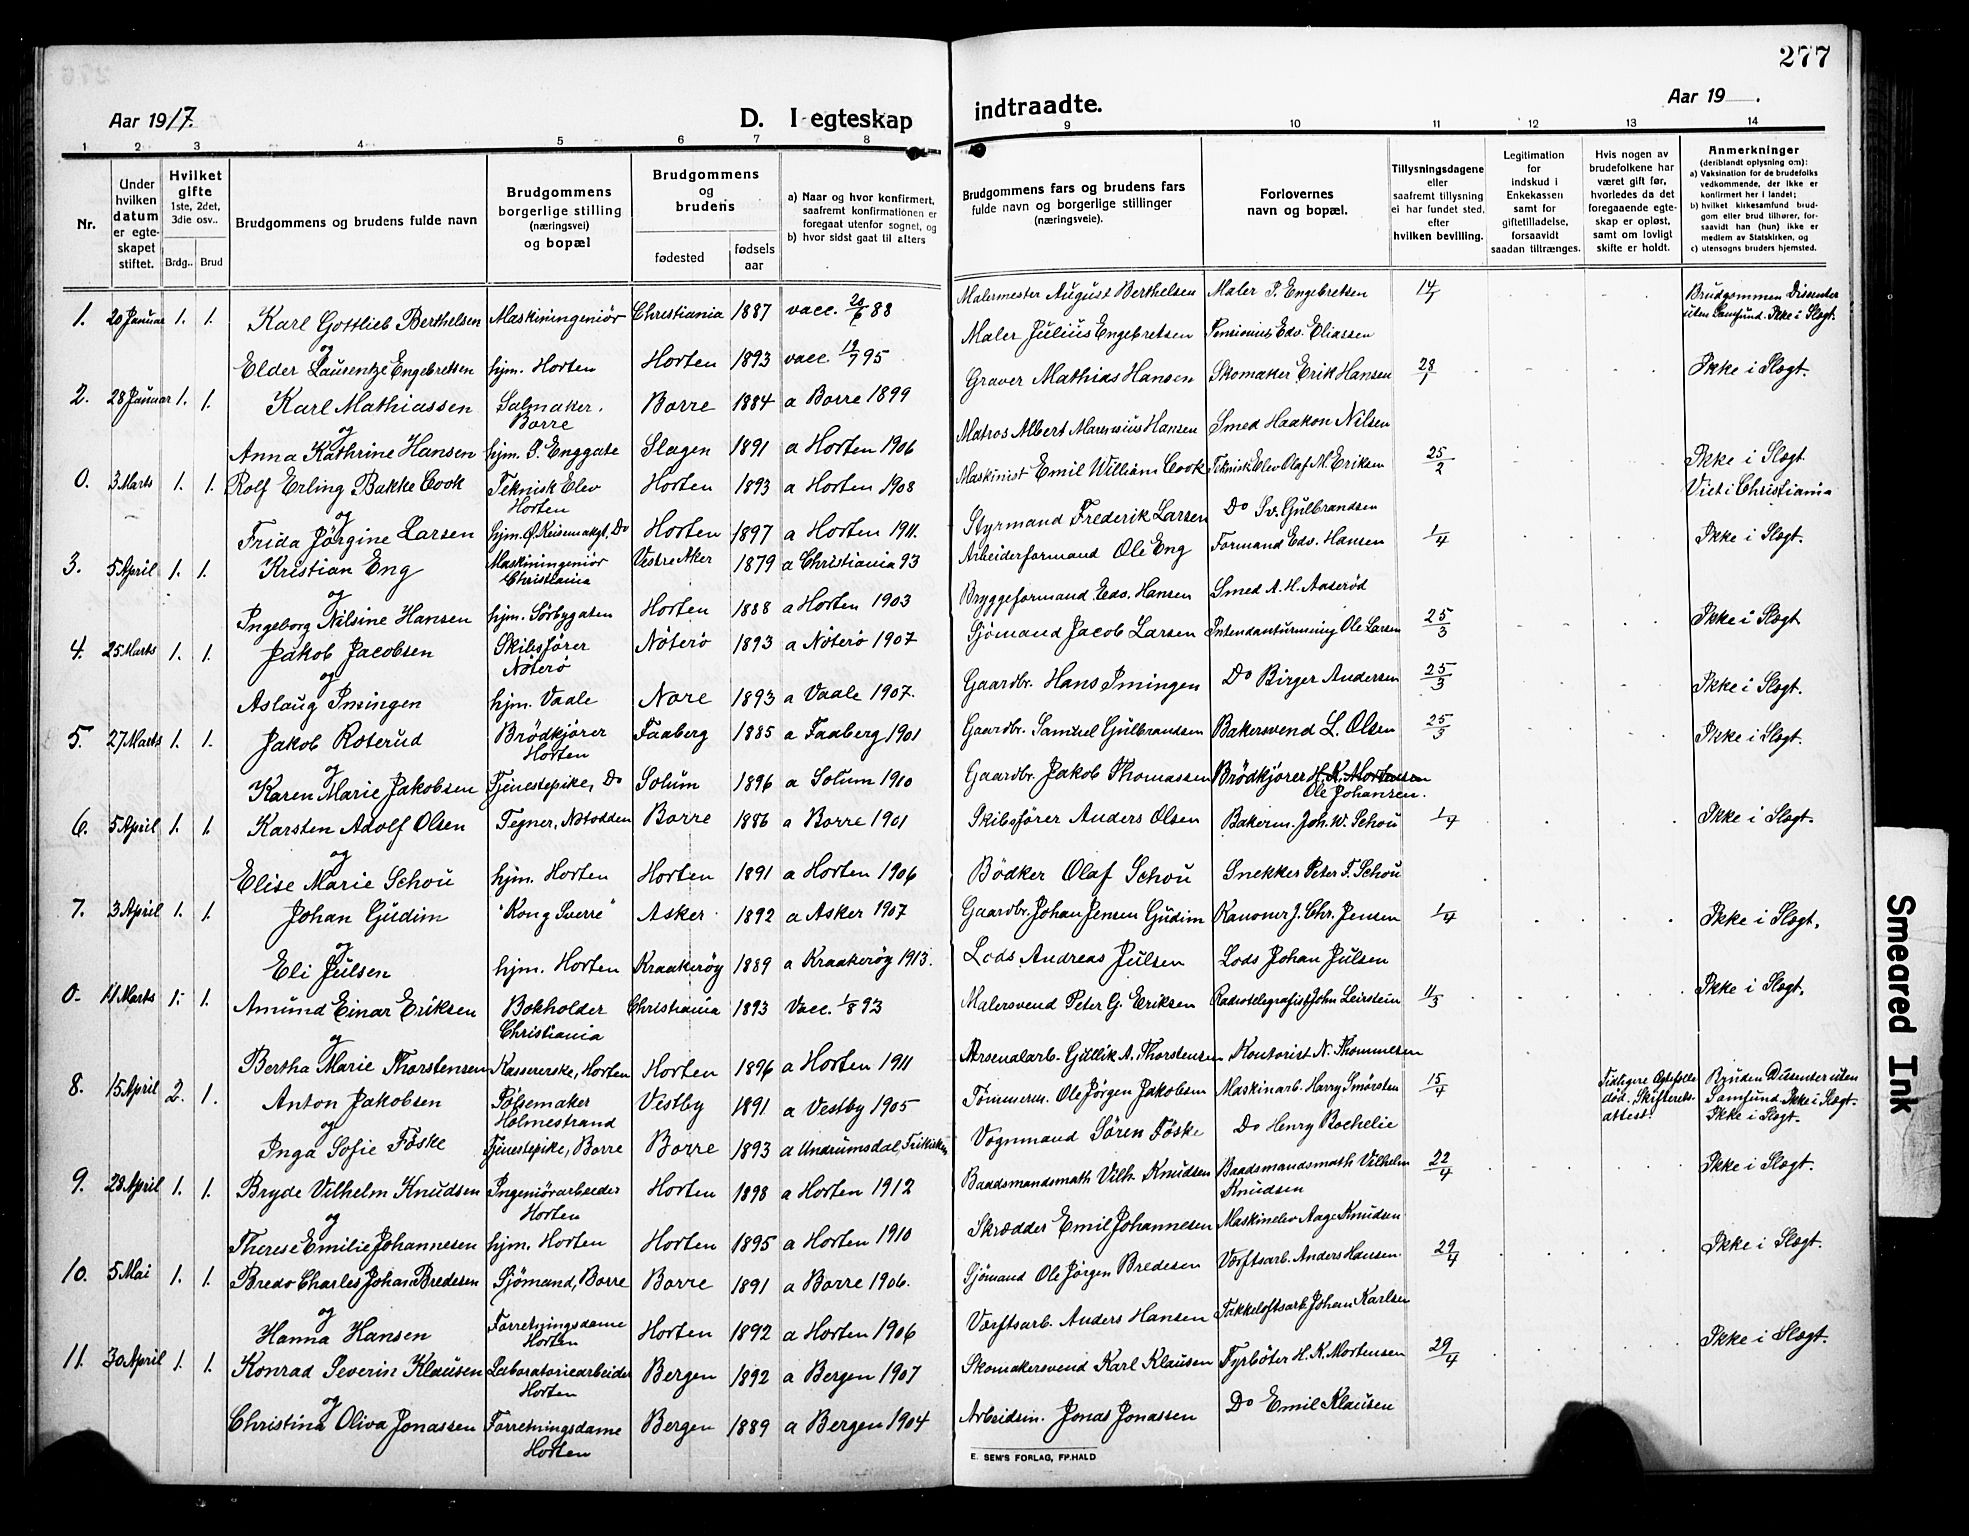 277
Aar 1917.
D. I egteskap
indtraadte.
Aar 19 .
1 2 3 4 5 6 7 8 9 10 11 12 13 14
Nr.
Under hvilken datum er egteskapet stiftet.
Hvilket gifte 1ste, 2det, 3die osv..
Brdg.. Brud
Brudgommens og brudens fulde navn
Brudgommens borgerlige stilling (næringsvei) og bopæl
Brudgommens og brudens
fødested
fødsels aar
a) Naar og hvor konfirmert, saafremt konfirmationen er foregaat utenfor sognet, og
b) hvor sidst gaat til alters
Brudgommens fars og brudens fars fulde navn og borgerlige stillinger (næringsveie).
Forlovernes navn og bopæl.
Tillysningsdagene eller saafremt tillysning ei har fundet sted. efter hvilken bevilling.
Legitimation for indskud i Enkekassen samt for giftetilladelse, forsaavidt saadan tiltrænges.
Hvis nogen av brudefolkene har været gift før, hvorledes da det foregaaende egteskap er opløst, samt om lovligt skifte er holdt.
Anmerkninger (deriblandt oplysning om):
a) Vaksination for de brudefolks vedkommende, der ikke er konfirmert her i landet;
b) hvilket kirkesamfund brudgom eller brud tilhører, forsaavidt han (hun) ikke er medlem av Statskirken, og
c) utensogns bruders hjemsted.
1. 20 Januar 1. 1. Karl Gottlieb Berthelsen Maskiningeniör Christiania 1887 vacc. 20/6 88 Malermester August Berthelsen Maler P. Engebretsen 14/1 Brudgommen Dissenter uten Samfund. Ikke i Slegt.
og
Elder Lausentze Engebretsen hjm. Horten Horten 1893 vacc. 19/7 95 Maler Julius Engebretsen Pensionist Edv. Eliassen
2. 28 Januar 1. 1. Karl Mathiassen Salmaker. Borre Borre 1884 a Borre 1899 Graver Mathias Hansen Skomaker Erik Hansen 28/1 Ikke i Slegt.
og
Anna Kathrine Hansen hjm. P. Enggate Slagen 1891 a Horten 1906 Matros Albert Marenius Hansen Smed Haakon Nilsen
0. 3 Marts 1. 1. Rolf Erling Bakke Cook Teknisk Elev Horten Horten 1893 a Horten 1908 Maskinist Emil William Cook Teknisk Elev Olaf M. Eriksen 25/2 Ikke i Slegt Viet i Christiania
og
Frida Jörgine Larsen hjm. Do Horten 1897 a Horten 1911. Styrmand Frederik Larsen Do Sv. Gulbrandsen
3. 5 April 1. 1. Kristian Eng Maskiningeniör Christiania Vestre Aker 1879 a Christiania 93 Arbeiderformand Ole Eng Formand Edv. Hansen 1/4 Ikke i Slegt.
og
Ingeborg Nilsine Hansen hjm. Sörbygaten Horten 1888 a Horten 1903 Bryggeformand Edv. Hansen Smed A. H. Aaseröd
4. 25 Marts 1. 1. Jakob Jacobsen Skibsförer Nöterö Nöterö 1893 a Nöterö 1907 Sjömand Jacob Larsen Ole Larsen 25/3 Ikke i Slegt
og
Aslaug Imingen hjm. Vaale Nore 1893 a Vaale 1907. Gaardbr. Hans Imingen Do Birger Andersen 25/3 Ikke i Slegt.
5. 27 Marts 1. 1. Jakob Roterud Brödkjörer Horten Faaberg 1885 a Faaberg 1901 Gaardbr. Samuel Gulbrandsen Bakersvend L. Olsen 25/3 Ikke i Slegt.
og
Karen Marie Jakobsen Tjenestepike, Do Solum 1896 a Solum 1910 Gaardbr. Jakob Thomassen Brödkjörer H. K. Mortensen Ole Johansen.
6. 5 April 1. 1. Karsten Adolf Olsen Tegner, Notodden Borre 1886 a Borre 1901 Skibsförer Anders Olsen Bakerm. Joh. W. Schou 1/4 Ikke i Slegt.
og
Elise Marie Schou hjm. Horten Horten 1891 a Horten 1906 Bödker Olaf Schou Snekker Peter F. Schou
7. 3 April 1. 1. Johan Gudim "Kong Sverre" Asker 1892 a Asker 1907 Gaardbr. Johan Jensen Gudim Kanoner J. Chr. Jensen 1/4 Ikke i Slegt.
og
Eli Julsen hjm. Horten Kraakeröy 1889 a Kraakeröy 1913. Lods Andreas Julsen Lods Johan Julsen
0. 11 Marts 1. 1. Amund Einar Eriksen Bokholder Christiania Christiania 1893 Vacc. 1/8 93 Malersvend Peter G. Eriksen Radiotelegrafist John Leirstein 11/3 Ikke i Slegt.
og
Bertha Marie Thorstensen Kassererske, Horten Horten 1896 a Horten 1911 Arsenalarb. Gullik A. Thorstensen Kontorist N. Thommesen
8. 15 April 2. 1. Anton Jakobsen Pölsemaker Holmestrand Vestby 1891 a Vestby 1905 Tömmerm. Ole Jörgen Jakobsen Maskinarb. Harry Smörsten 15/4 Tidligere Egtefelle död. Skifteretsattest. Bruden Dissenter uten Samfund. Ikke i Slegt. Ikke i Slegt.
og
Inga Sofie Föske Tjenestepike, Borre Borre 1893 a Undrumsdal, Frikirken Vognmand Sören Föske Do Henry Bochelie
9. 28 April 1. 1. Bryde Vilhelm Knudsen Ingeniörarbeider Horten Horten 1898 a Horten 1912 Baadsmandsmath Vilh. Knudsen Baadsmandsmath Vilhelm Knudsen 22/4 Ikke i Slegt.
og
Therese Emilie Johannesen hjm. Horten Horten 1895 a Horten 1910 Skrædder Emil Johannesen Maskinelev Aage Knudsen
10. 5 Mai 1. 1. Bredo Charles Johan Bredesen Sjömand, Borre Borre 1891 a Borre 1906. Sjömand Ole Jörgen Bredesen Værftsarb. Anders Hansen 29/4 Ikke i Slegt.
og
Hanna Hansen Forretningsdame Horten Horten 1892 a Horten 1906 Værftsarb. Anders Hansen Takkeloftsarb. Johan Karlsen
11. 30 April 1. 1. Konrad Severin Klausen Laboratoriearbeider Horten Bergen 1892 a Bergen 1907 Skomakersvend Karl Klausen Fyrböter H. K. Mortensen 29/4 Ikke i Slegt.
og
Christina Oliva Jonassen Forretningsdame Horten Bergen 1889 a Bergen 1904 Arbeidsm. Jonas Jonassen Do Emil Klausen
E. SEM'S FORLAG, FR.HALD
Smeared Ink